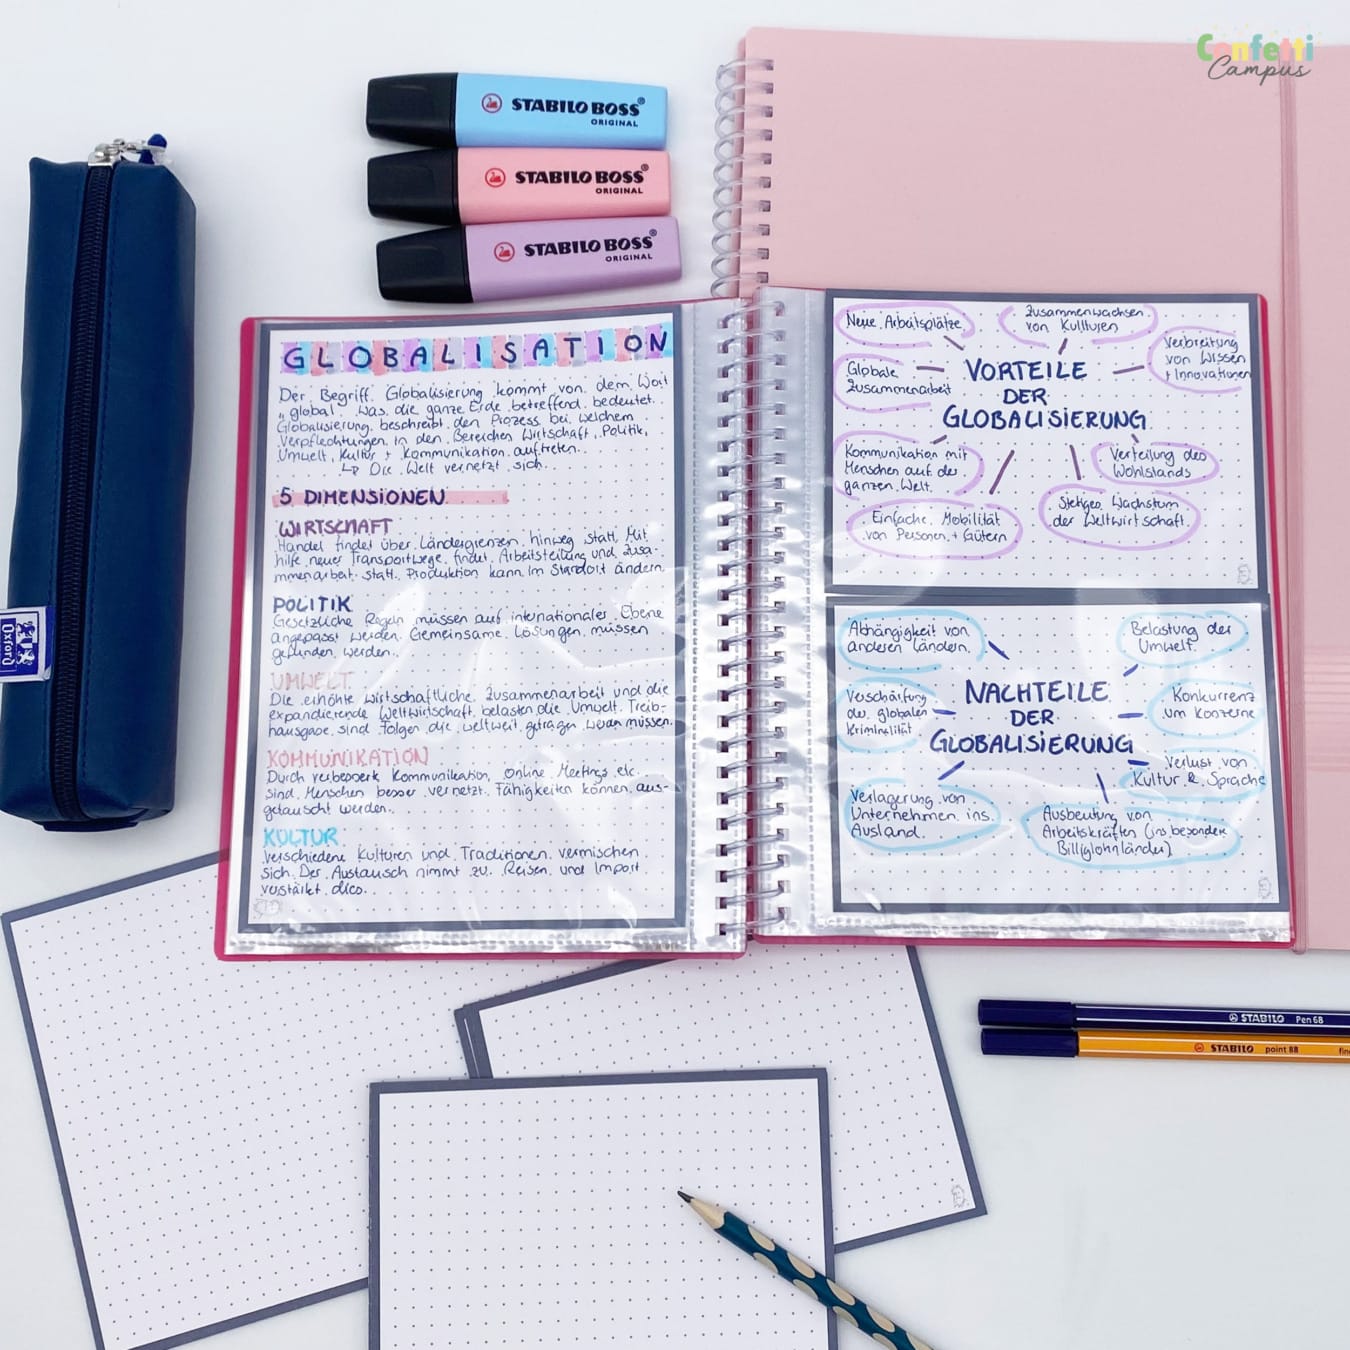 Confetti
Campus
STABILO BOSS®
ORIGINAL
STABILO BOSS®
ORIGINAL
STABILO BOSS®
ORIGINAL
Oxford
GLOBALISATION
Der Begriff Globalisierung kommt von dem Wort
"global". Was die ganze Erde betreffend bedeutet.
Globalisierung beschreibt den Prozess bei welchem
Verpflechtungen in den Bereichen Wirtschaft, Politik,
Umwelt, Kultur + Kommunikation auftreten.
↳ Die Welt vernetzt sich.
5 DIMENSIONEN
WIRTSCHAFT
Handel findet über Ländergrenzen hinweg statt. Mit
hilfe neuer Transportwege findet Arbeitsteilung und Zusa-
mmenarbeit statt. Produktion kann im Standort ändern.
POLITIK
Gesetzliche Regeln müssen auf internationaler Ebene
angepasst werden. Gemeinsame Lösungen müssen
gefunden werden.
UMWELT
Die erhöhte wirtschaftliche Zusammenarbeit und die
expandierende Weltwirtschaft belasten die Umwelt. Treib-
hausgase sind Folgen die weltweit getragen werden müssen.
KOMMUNIKATION
Durch verbesserte Kommunikation, online Meetings etc.
sind Menschen besser vernetzt. Fähigkeiten können aus-
getauscht werden.
KULTUR
Verschiedene Kulturen und Traditionen vermischen
sich. Der Austausch nimmt zu. Reisen und Import
verstärkt dies.
Neue Arbeitsplätze
Zusammenwachsen
von Kulturen
Verbreitung
von Wissen
+ Innovationen
Globale
Zusammenarbeit
VORTEILE
DER
GLOBALISIERUNG
Kommunikation mit
Menschen auf der
ganzen Welt.
Verteilung des
Wohlstands
Einfache Mobilität
von Personen + Gütern
Stetiges Wachstum
der Weltwirtschaft.
Abhängigkeit von
anderen Ländern.
Belastung der
Umwelt.
Verschärfung
der globalen
Kriminalität
NACHTEILE
DER
GLOBALISIERUNG
Konkurrenz
um Konzerne
Verlust von
Kultur & Sprache
Verlagerung von
Unternehmen ins
Ausland.
Ausbeutung von
Arbeitskräften (insbesondere
Billiglohnländer)
STABILO Pen 68
STABILO point 88